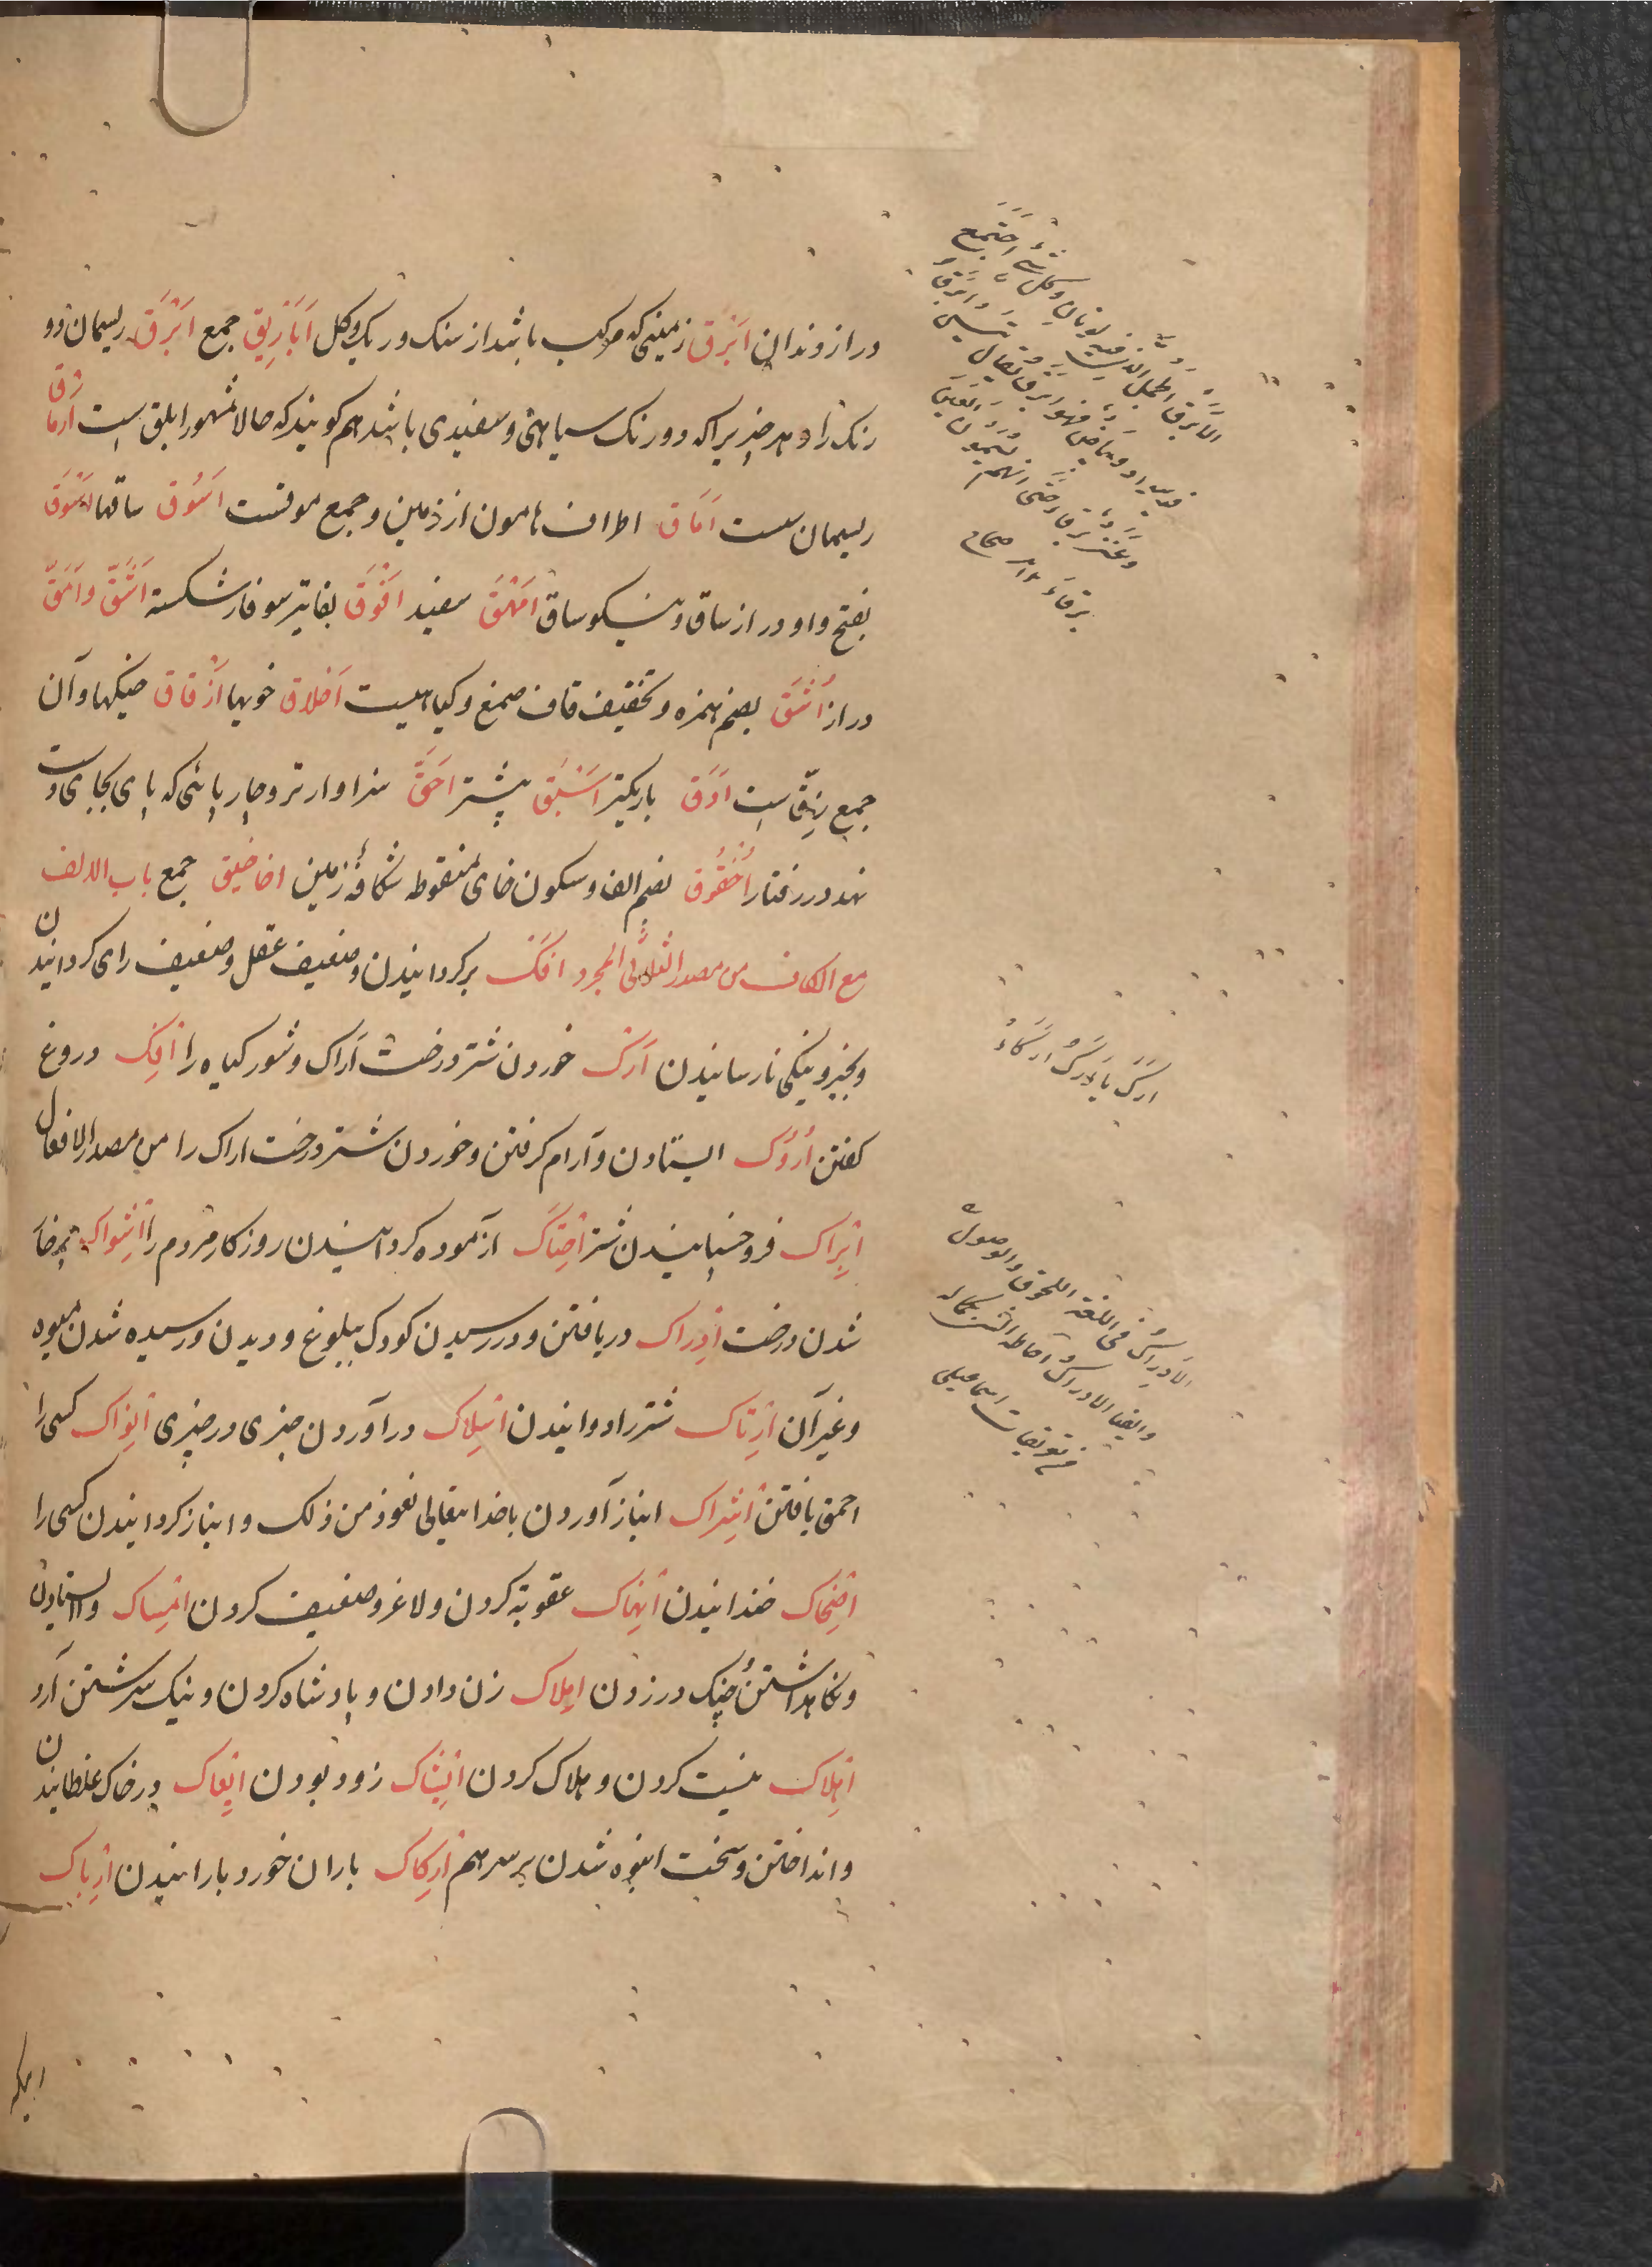 دراز دندان اَبْرَق زمینی که مرکب باشد از سنک و ریک و کل اَبَارِیق جمع اَبْرَق ریسمان دو
رنک را و هر چیزیرا که دو رنک سیاهی و سفیدی باشد هم کویند که حالا مشهور ابلق است اَرمَاق
ریسمان سست اَمَاق اطراف هامون از زمین و جمع موقست اَسْوُق ساقها اَسْوَق
بفتح واو دراز ساق و نیکو ساق اَمْهَق سفید اَفْوَق بغایت سوفار شکسته اَشَقّ و اَمَقّ
دراز اُشَق بضم همزه و تخفیف قاف صمغ و کیاهیست اَخلاق خویها اَزْقاق خیکها و آن
جمع زِقّ است اَدَقّ باریکتر اَسْبَق پیشتر اَحَقّ سزاوارتر و چارپائی که پای بجای دست
نهد در رفتار اُخْقُوق بضم الف و سکون خای منقوطه شکاف زمین اخاقیق جمع باب الالف
مع الکاف من مصدر الثلاثی المجرد اَفْک برکردانیدن و ضعیف عقل و ضعیف رای کردانیدن
و بخیر و نیکی نارسانیدن اَرْک خوردن شتر درخت اَراک و شور کیاه را اِفْک دروغ
کفتن اُرُوک ایستادن و آرام کرفتن و خوردن شتر درخت اراک را من مصدر الافعال
اِبْرَاک فروخسپانیدن شتر اِحْنَاک آزموده کردانیدن روزکار مردم را اِشْوَاک پرخار
شدن درخت اِدْرَاک دریافتن و در رسیدن کودک ببلوغ و دیدن و رسیده شدن میوه
و غیر آن اِرْتَاک شتر را دوانیدن اِسْلاک درآوردن چیزی در چیزی اِنْوَاک کسی را
احمق یافتن اِشْرَاک انباز آوردن با خدایتعالی نعوذ من ذلک و انباز کردانیدن کسی را
اِضْحَاک خندانیدن اِنْهَاک عقوبة کردن و لاغر و ضعیف کردن اِمْسَاک و ایستادن
و نکاهداشتن و چنک در زدن اِمْلاک زن دادن و پادشاه کردن و نیک سرشتن آرد
اِهْلاک نیست کردن و هلاک کردن اِیْشَاک زود بودن اِیْعَاک در خاک غلطانیدن
و انداختن و سخت انبوه شدن بر سر هم اِرْکَاک باران خورد بارانیدن اِرْبَاک
الاَبْرَق الحبل الذی فیه لونان و کل شیء اجتمع
فیه سواد و بیاض فهو اَبْرَق یقال تیس اَبْرَق
وعنز برقاء حتی انهم یسمون العین
برقاء صحاح
اَرَکَ یَأرُکُ اُرُوکاً
الاِدراک فی اللغة اللحوق والوصول
وایضا الادراک احاطة الشیء بکماله
من تعریفات اسماعیلی